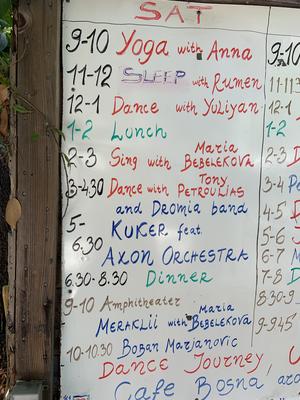 SAT
9-10 Yoga with Anna
11-12 SLEEP with Rumen
12-1 Dance with YuLiyan
1-2 Lunch
2-3 Sing with Maria BEBELEKOVA
3-4.30 Dance with Tony PETROULIAS
and Dromia band
5-6.30 KUKER feat.
AXON ORCHESTRA
6.30-8.30 Dinner
9-10 Amphitheater
MERAKLII with Maria BEBELEKOVA
10-10.30 Boban Marjanovic
DANCE JOURNEY,
Cafe Bosna
9-10
12-1
1-2
2-3
3-4
4-5
5-6
6-7
7-8
8.30-9
9-9.45